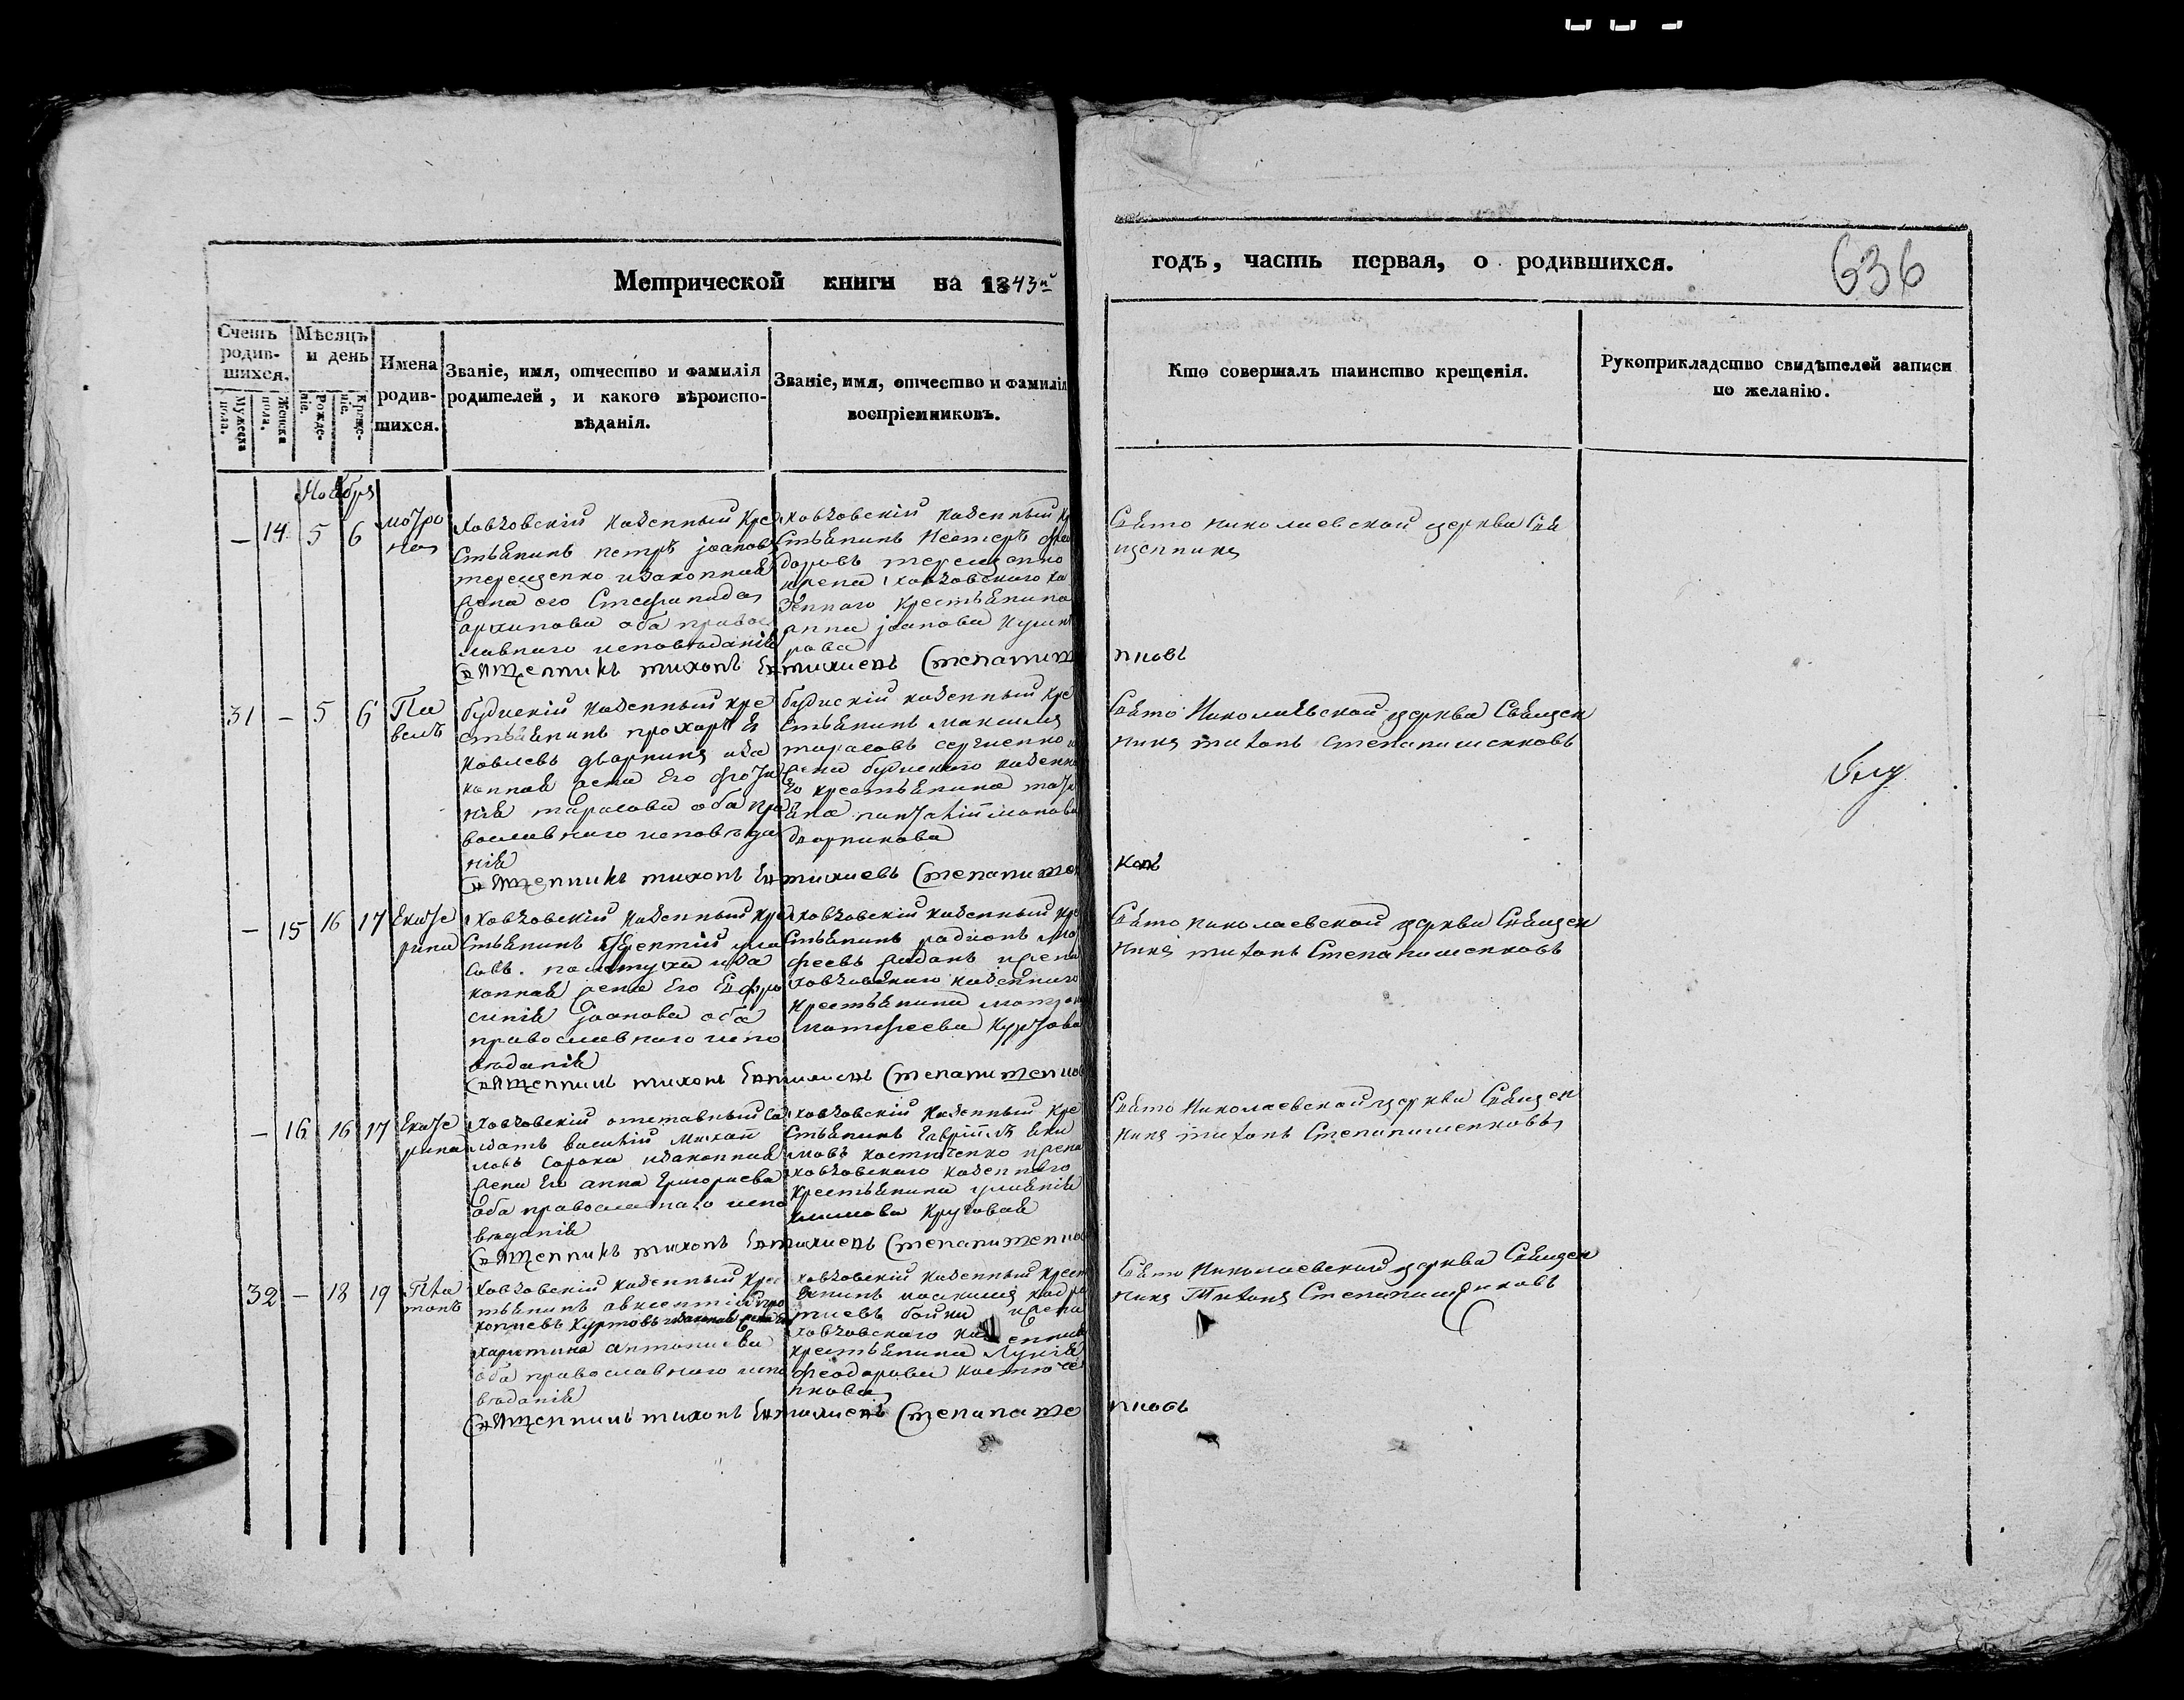 Метрической книги на 1843й
годъ, часть первая, о родившихся.
636
Счетъ родив-
шихся.
Мужеска пола.
Женска пола.
Мѣсяцъ
и день
Рожде-
ніе.
Креще-
ніе.
Имена
родив-
шихся.
Званіе, имя, отчество и фамилія
родителей, и какого вѣроиспо-
вѣданія.
Званіе, имя, отчество и фамилія
воспріемниковъ.
Кто совершалъ таинство крещенія.
Рукоприкладство свидѣтелей записи
по желанію.
Ноября
— 14 5 6
мотро
на
ховзовскій казенный кре
стьянинъ петръ іоановъ
терещенко изаконная
жена его Стефанида
архипова оба правос
лавнаго исповѣданія
ховзовскій казенный кр
стьянинъ Нестеръ фео
доровъ терещенко
ижена ховзовскаго ка
зеннаго крестьянина
анна іоанова
Свято николаевской церкви Свя
щенникъ
Священникъ тихонъ Евтихиевъ Степанишен
ковъ
31 — 5 6
Па
велъ
будискій казенный кре
стьянинъ прохоръ я
ковлевъ дворникъ иза
конная жена Его
тарасова оба пра
вославнаго исповѣда
нія
будискій казенный кре
стьянинъ максимъ
тарасовъ сергиенко и
жена будискаго казенна
го крестьянина
дворникова
Свято Николаевской церкви Священ
никъ тихонъ степанишенковъ
Священникъ тихонъ Евтихиевъ Степанишен
ковъ
— 15 16 17
Екате
рина
ховзовскій казенный кре
стьянинъ
совъ. пастуха иза
конная жена Его Евфро
синія Іоанова оба
православнаго испо
вѣданія
ховзовскій казенный кре
стьянинъ радионъ мо
феевъ ижена
ховзовскаго казеннаго
крестьянина матрона
матфеева Куртова
Свято николаевской церкви Священ
никъ тихонъ Степанишенковъ
Священникъ тихонъ Евтихиевъ Степанишенков
— 16 16 17
Екате
рина
ховзовскій отставный сол
датъ василій Михай
ловъ Сорока изаконная
жена Его анна Григориева
оба православнаго испо
вѣданія
ховзовскій казенный кре
стьянинъ гавріилъ аки
мовъ костюченко ижена
ховзовскаго казеннаго
крестьянина улиянія
климова Круговая
Свято Николаевской церкви Священ
никъ тихонъ Степанишенковъ
Священникъ тихонъ Евтихиевъ Степанишенков
32 — 18 19
Пла
тонъ
ховзовскій казенный крес
тьянинъ авксентій про
копиевъ Куртовъ изаконная жена Его
харитина антониева
оба православнаго испо
вѣданія
ховзовскій казенный крест
янинъ иоакимъ кодра
тиевъ бойки ижена
ховзовскаго казенна
крестьянина Лукія
феодорова костюче
нкова
Свято Николаевской церкви Священ
никъ Тихонъ Степанишенковъ
Священникъ тихонъ Евтихиевъ Степанише
нковъ